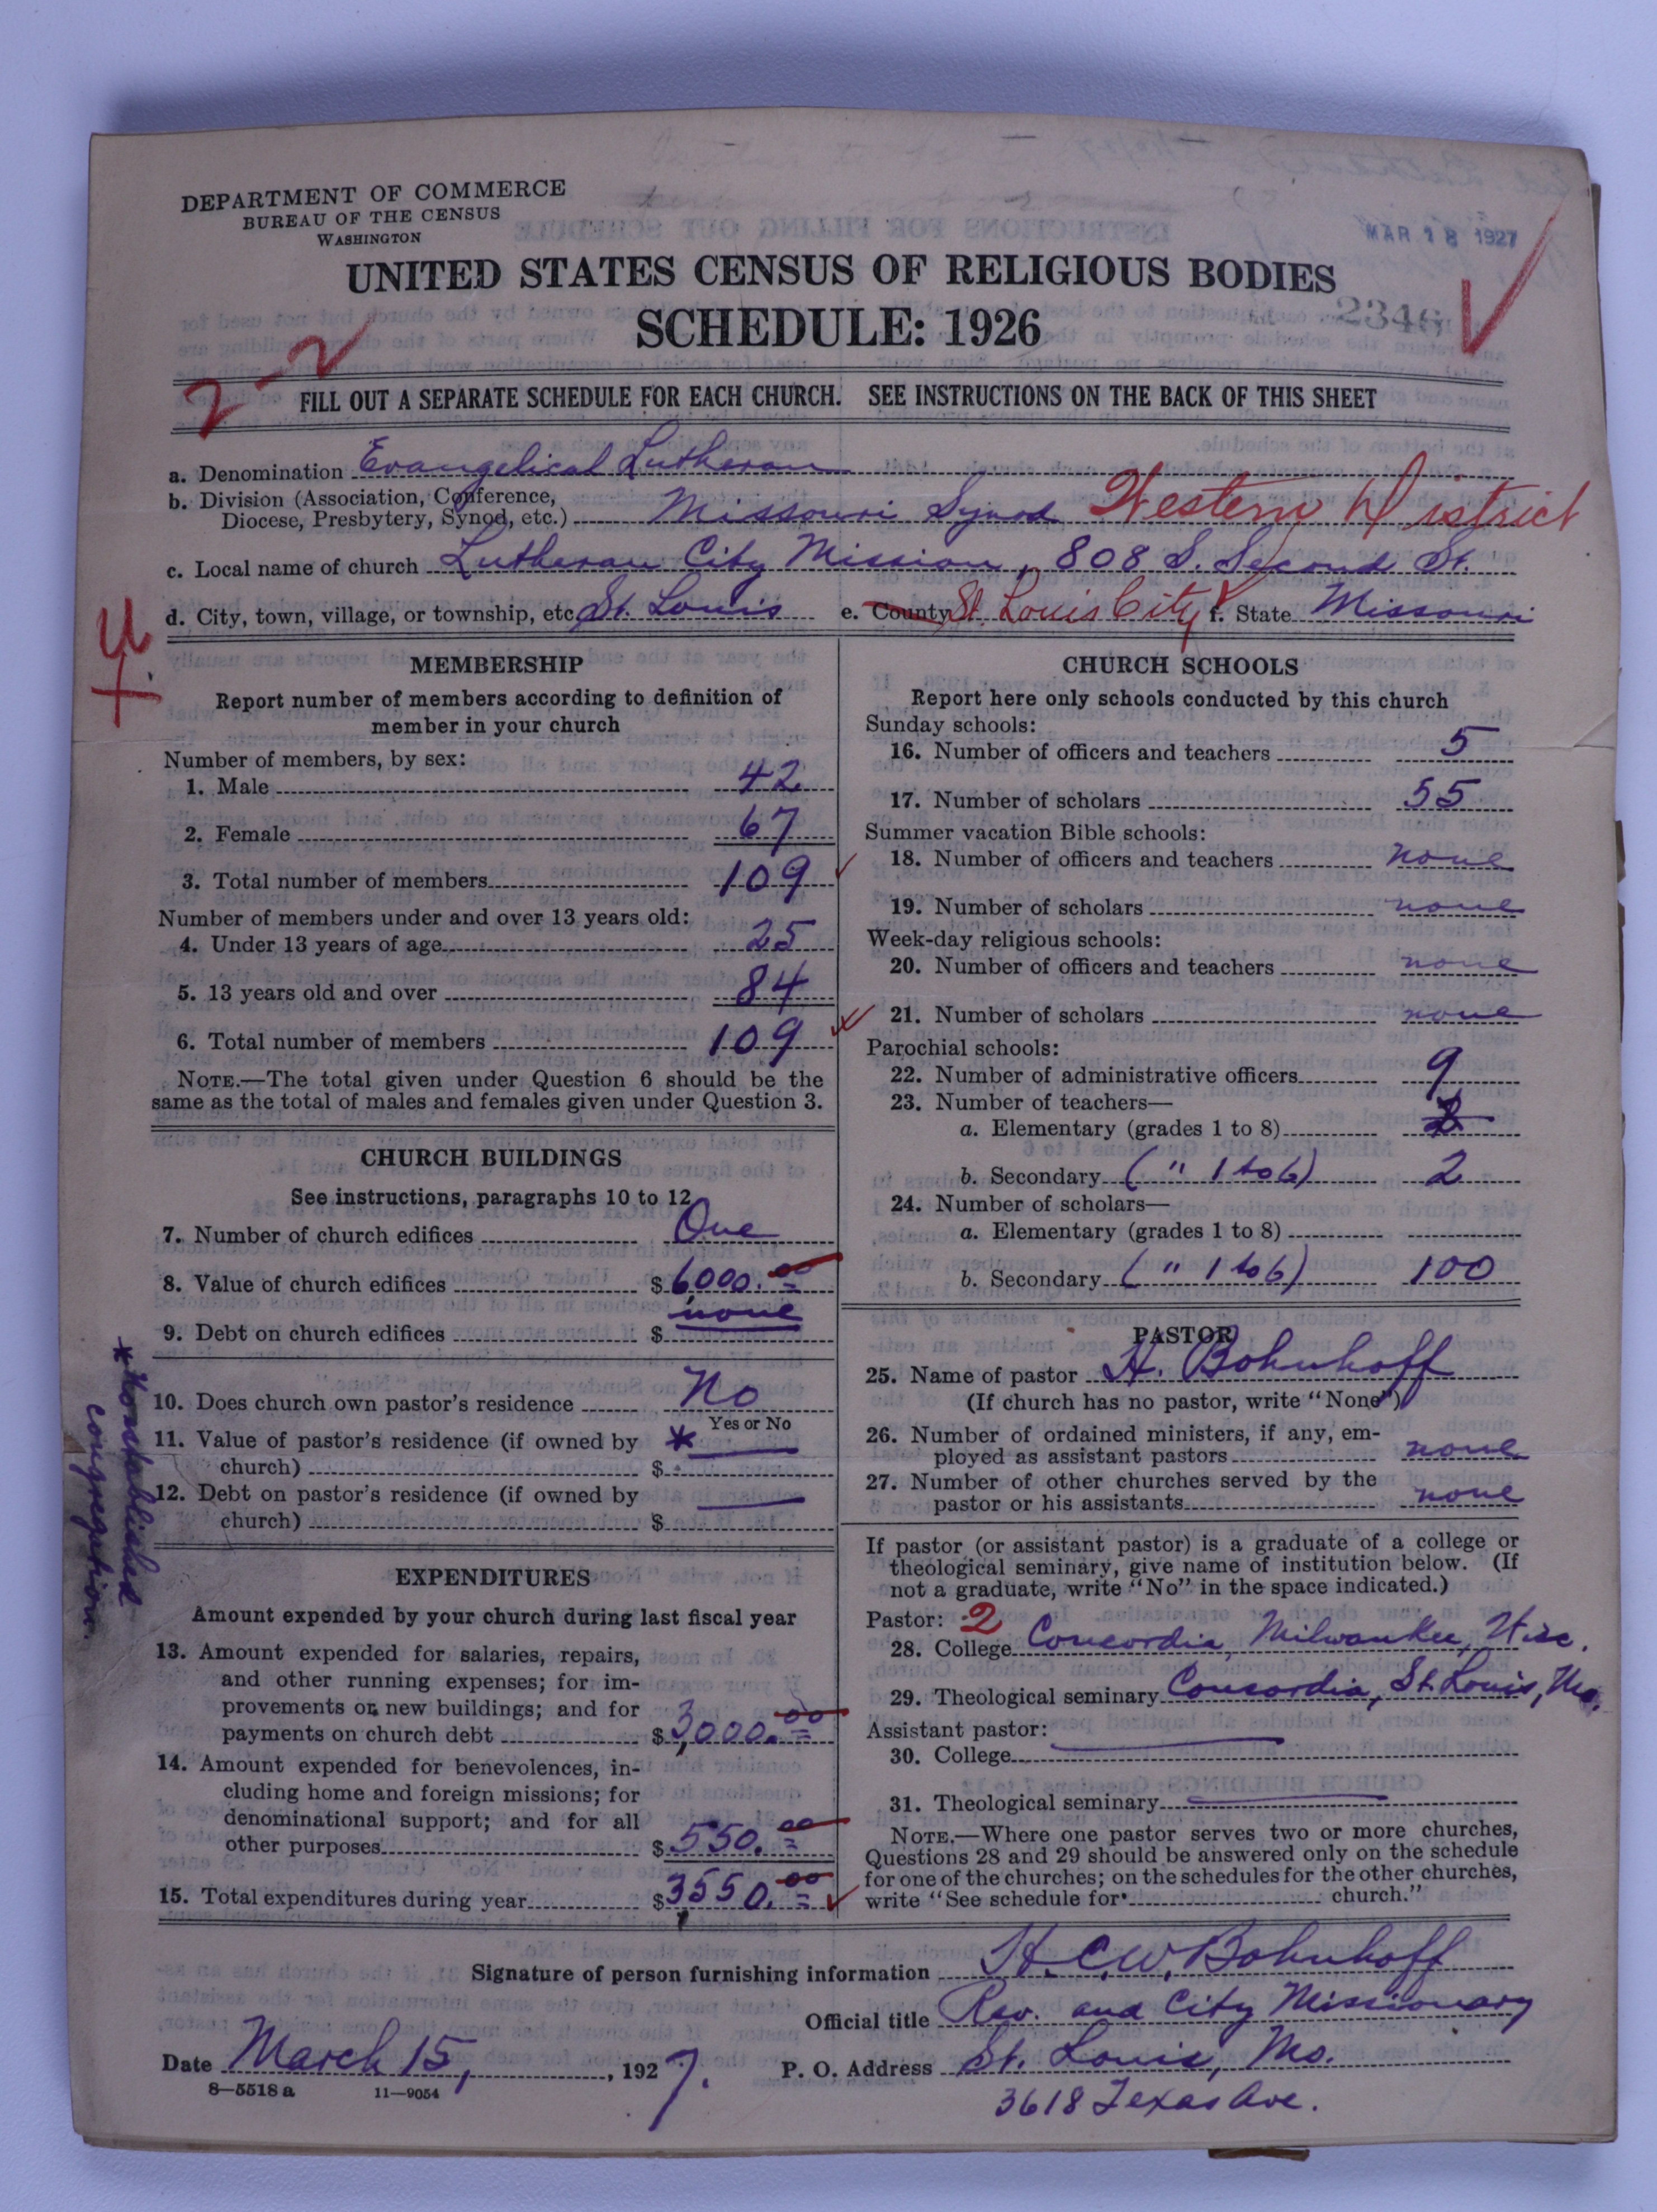 DEPARTMENT OF COMMERCE
BUREAU OF THE CENSUS
WASHINGTON
MAR 18 1927
UNITED STATES CENSUS OF RELIGIOUS BODIES
2346
SCHEDULE: 1926
2-2
FILL OUT A SEPARATE SCHEDULE FOR EACH CHURCH. SEE INSTRUCTIONS ON THE BACK OF THIS SHEET
a. Denomination Evangelical Lutheran
b. Division (Association, Conference,
Diocese, Presbytery, Synod, etc.) Missouri Synod Western District
c. Local name of church Lutheran City Mission, 808 S. Second St.
d. City, town, village, or township, etc. St. Louis e. County St. Louis City f. State Missouri
U
MEMBERSHIP
Report number of members according to definition of
member in your church
Number of members, by sex:
1. Male 42
2. Female 67
3. Total number of members 109
Number of members under and over 13 years old:
4. Under 13 years of age 25
5. 13 years old and over 84
6. Total number of members 109
NOTE.—The total given under Question 6 should be the
same as the total of males and females given under Question 3.
CHURCH BUILDINGS
See instructions, paragraphs 10 to 12
7. Number of church edifices One
8. Value of church edifices $ 6000.00
9. Debt on church edifices $ none
10. Does church own pastor's residence No
Yes or No
11. Value of pastor's residence (if owned by *
church) $
12. Debt on pastor's residence (if owned by
church) $
congregation.
EXPENDITURES
Amount expended by your church during last fiscal year
13. Amount expended for salaries, repairs,
and other running expenses; for im-
provements or new buildings; and for
payments on church debt $ 3,000.00
14. Amount expended for benevolences, in-
cluding home and foreign missions; for
denominational support; and for all
other purposes $ 550.00
15. Total expenditures during year $ 3550.00
CHURCH SCHOOLS
Report here only schools conducted by this church
Sunday schools:
16. Number of officers and teachers 5
17. Number of scholars 55
Summer vacation Bible schools:
18. Number of officers and teachers none
19. Number of scholars none
Week-day religious schools:
20. Number of officers and teachers none
21. Number of scholars none
Parochial schools:
22. Number of administrative officers 9
23. Number of teachers—
a. Elementary (grades 1 to 8) 2
b. Secondary ( " 1 to 6) 2
24. Number of scholars—
a. Elementary (grades 1 to 8)
b. Secondary ( " 1 to 6) 100
PASTOR
25. Name of pastor H. Bohnhoff
(If church has no pastor, write "None")
26. Number of ordained ministers, if any, em-
ployed as assistant pastors none
27. Number of other churches served by the
pastor or his assistants none
If pastor (or assistant pastor) is a graduate of a college or
theological seminary, give name of institution below. (If
not a graduate, write "No" in the space indicated.)
Pastor: 2
28. College Concordia, Milwaukee, Wisc.
29. Theological seminary Concordia, St. Louis, Mo.
Assistant pastor:
30. College
31. Theological seminary
NOTE.—Where one pastor serves two or more churches,
Questions 28 and 29 should be answered only on the schedule
for one of the churches; on the schedules for the other churches,
write "See schedule for church."
Signature of person furnishing information H. C. W. Bohnhoff
Official title Rev. and City Missionary
Date March 15, 1927. P. O. Address St. Louis, Mo.
8—5518 a 11—9054
3618 Texas Ave.